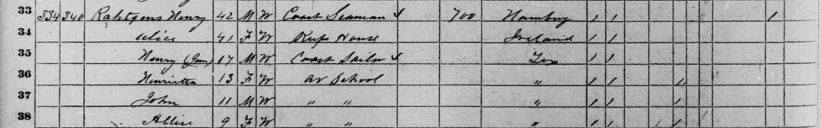 33 334 340 Rahtgens Henry 42 M W Coast Seaman 700 Hamburg 1 1 1
34 Alice 41 F W Keep House Ireland 1 1
35 Henry (Jun) 17 M W Coast Sailor Tex 1 1
36 Henrietta 13 F W At School " 1 1 1
37 John 11 M W " " " 1 1 1
38 Allice 9 F W " " " 1 1 1